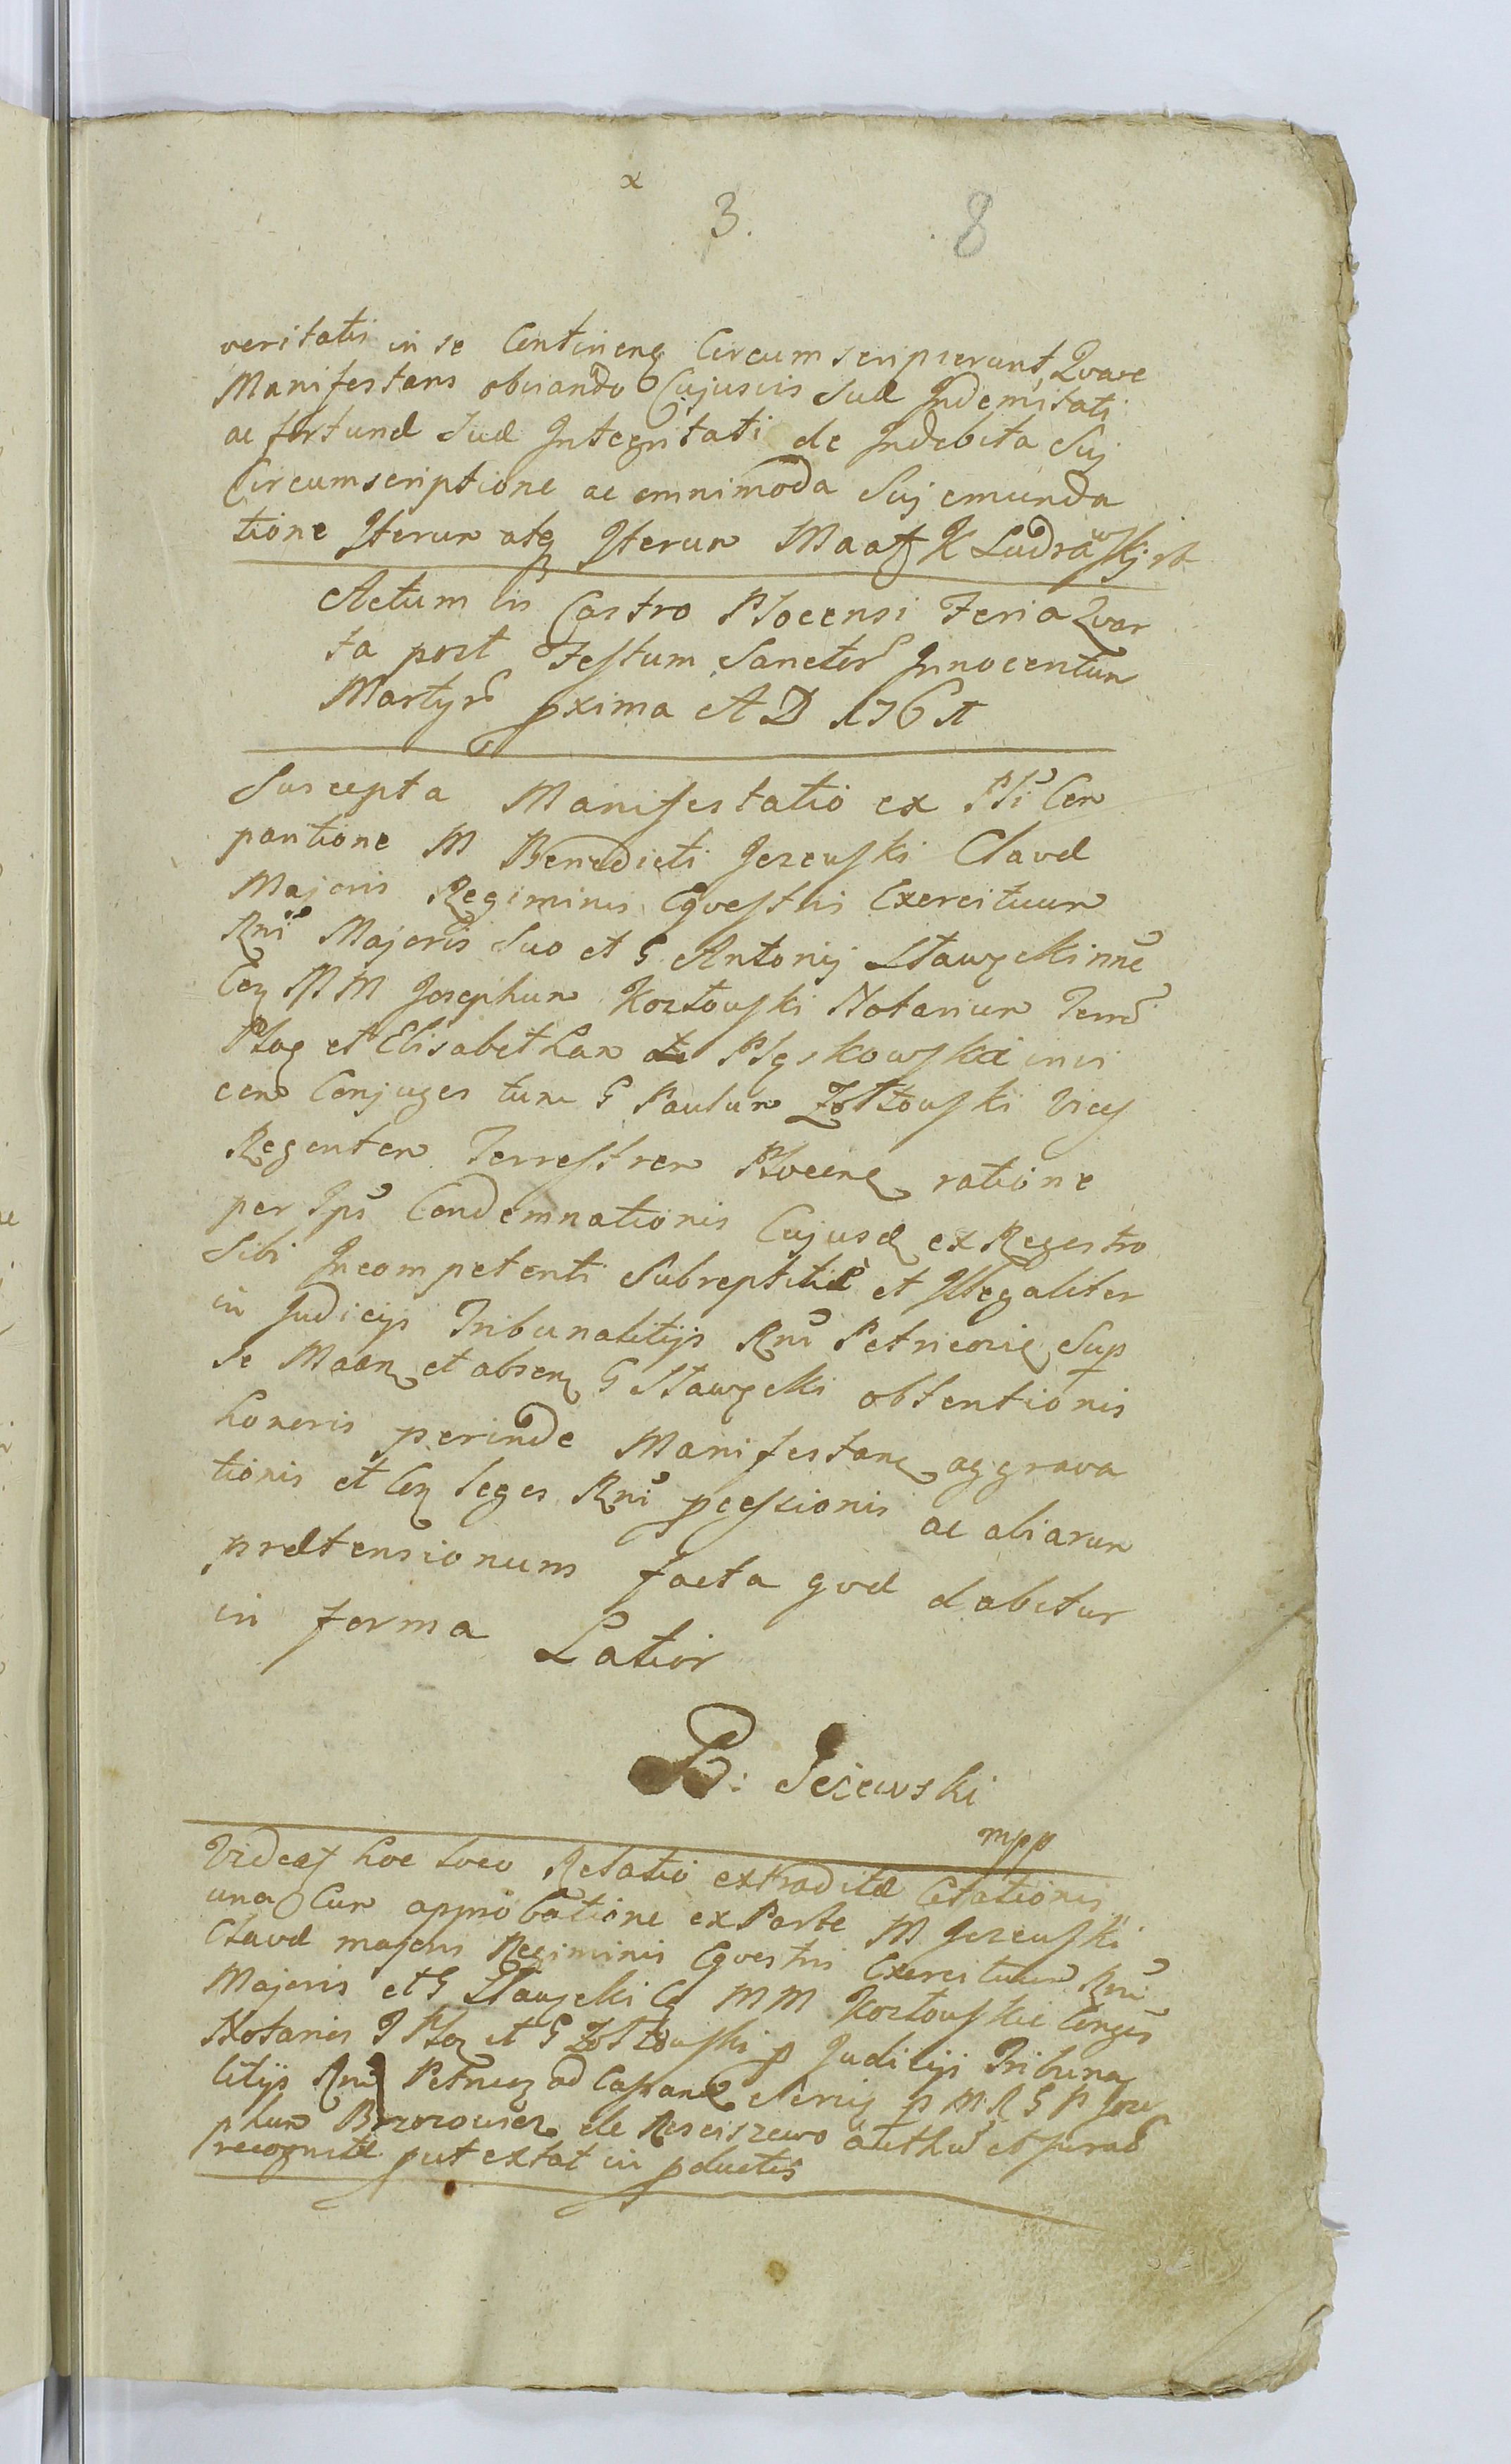 x
3. 8
veritatis in se Continenꝫ Circumscripserunt, Qvare
Manifestans obviando Cujusvis Suæ Indemnitati
ac fortunæ Suæ Integritati de Indebita Suj
Circumscriptione ac omnimoda Suj emunda
tione Iterum atqꝫ Iterum K Ludra
Actum in Castro Plocensi Feria Qvar
ta post Festum Sanctor Innocentum
Martyr pxima A D 1761
Suscepta Manifestatio ex Com
paritione M Benedicti Jezewski Clavæ
Majoris Regiminis Eqvestris Exercituum
Rni Majoris Suo et G Antonij nne
Con MM Josephum Kozłowski Notarium Terr
Ploc et Elisabetham Pląskowska invi
cem Conjuges tum G Paulum Zołtowski Vices
Regentem Terrestrem Plocenꝫ ratione
per Ips Condemnationis Cujusd ex Regestro
Sibi Incompetenti Subreptitiè et Illegaliter
in Judicijs Tribunalitijs Rni Petricovie Sup
se Maen et absen G obtentionis
honoris perinde Manifestanꝫ aggrava
tionis et Con leges Rni pcessionis ac aliarum
prætensionum facta qvæ dabitur
in forma Latiori
B: Jeżewski
mpp
Videat hoc loco Relatio extraditæ Citationis
una Cum approbatione ex Parte M Jezewski
Clavæ majoris Regiminis Eqvestris Exercituum Rni
Majoris et G C MM Kozłowskie Conges
Notarios T Ploc et G Zołtowski p Judicijs Tribuna
litijs Rni Petricoꝫ ad p M R G P Jose
phum Brzozowicz de Resciszewo auth et jurat
recognitæ put extat in pductis